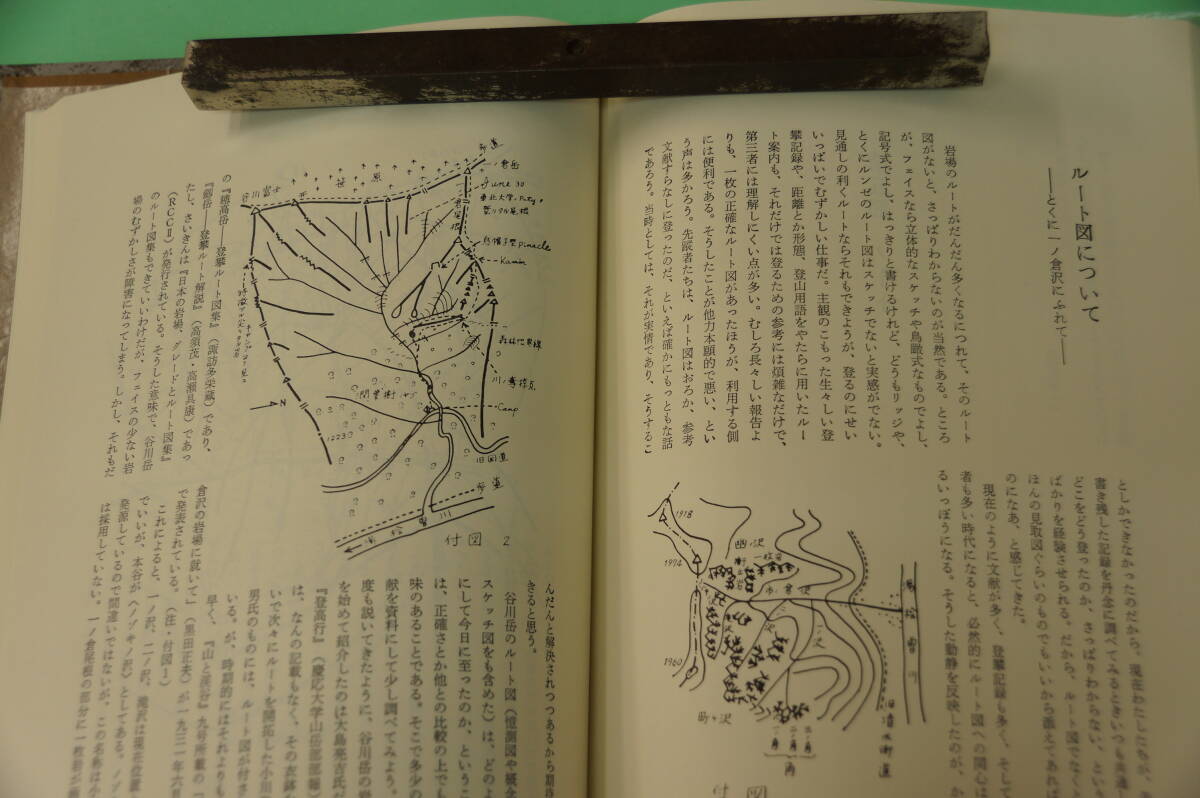 ルート図について
――とくに一ノ倉沢にふれて――
岩場のルートがだんだん多くなるにつれて、そのルート
図がないと、さっぱりわからないのが当然である。ところ
が、フェイスなら立体的なスケッチや鳥瞰式なものでよし、
記号式でよし、はっきりと書けるけれど、どうもリッジや、
とくにルンゼのルート図はスケッチでないと実感がでない。
見通しの利くルートならそれもできようが、登るのにせい
いっぱいでむずかしい仕事だ。主観のこもった生々しい登
攀記録や、距離とか形態、登山用語をやたらに用いたルー
ト案内も、それだけでは登るための参考には煩雑なだけで、
第三者には理解しにくい点が多い。むしろ長々しい報告よ
りも、一枚の正確なルート図があったほうが、利用する側
には便利である。そうしたことが他力本願的で悪い、とい
う声は多かろう。先蹤者たちは、ルート図はおろか、参考
文献すらなしに登ったのだ、といえば確かにもっともな話
であろう。当時としては、それが実情であり、そうするこ
としかできなかったのだから。現在わたしたちが、
書き残した記録を丹念に調べてみるときいつも共通し
どこをどう登ったのか、さっぱりわからない、という
ばかりを経験させられる。だから、ルート図でなくと
ほんの見取図ぐらいのものでもいいから添えてあれば
のになあ、と感じてきた。
現在のように文献が多く、登攀記録も多く、そして
者も多い時代になると、必然的にルート図への関心は
るいっぽうになる。そうした動静を反映したのが、か
1918
1974
1960
幽ノ沢
一枚岩
一ノ倉沢
一ノ沢
町ヶ沢
湯桧曽川
旧清水街道
付図
の『穂高岳――登攀ルート図集』(諏訪多栄蔵)であり、
『剱岳――登攀ルート解説』(高須茂・高瀬具康)であっ
たし、さいきんは『日本の岩場、グレードとルート図集』
(RCCⅡ)が発行されている。そうした意味で、谷川岳
のルート図集もできていいわけだが、フェイスの少ない岩
場のむずかしさが障害になってしまう。しかし、それもだ
歩道
一ノ倉岳
June 30
東北大学. Party.
笹原
谷川富士
烏帽子型 Pinacle
Kamin
森林世界線
川ノ奪掠点
Camp
闊葉樹
1223
N
旧国道
歩道
湯桧曽川
付図 2
んだんと解決されつつあるから期待
きると思う。
谷川岳のルート図(憶測図や概念
スケッチ図をも含めた)は、どのよ
にして今日に至ったのか、というこ
は、正確さとか他との比較の上でも
味のあることである。そこで多少の
献を資料にして少し調べてみよう。
度も説いてきたように、谷川岳の岩
を始めて紹介したのは大島亮吉氏だ
『登高行』(慶応大学山岳部部報)
は、なんの記載もなく、その衣鉢
いで次々にルートを開拓した小川
男氏のものには、ルート図が付さ
いる。が、時期的にはそれよりも
早く、『山と渓谷』九号所載の『
倉沢の岩場に就いて」(黒田正夫)が一九三一年六月
で発表されている。(注・付図1)
これによると、一ノ沢、二ノ沢、滝沢は現在位置
でいいが、本谷が〈ノゾキノ沢〉としてある。ノゾ
発源しているので間違いではないが、この名称は小
は採用していない。一ノ倉尾根の部分に一枚岩が